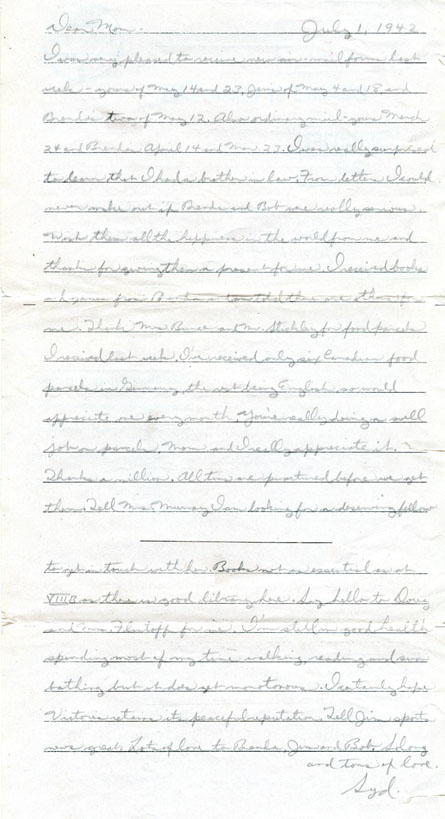 Dear Mom. July 1, 1942
I was very pleased to receive new air mail form last
week - yours of May 14 and 23, Jim's of May 4 and 18 and
Brenda's two of May 12. Also ordinary mail - yours March
24 and Brenda's April 14 and Mar. 27. I was really surprised
to learn that I had a brother in law. From letters I could
never make out if Brenda and Bob were really serious.
Wish them all the happiness in the world from me and
thanks for giving them a present for me. I received books
from Brenda
me. Thank Mrs. and Mr. Stickley for food parcels
I received last week. I've received only six Canadian food
parcels in Germany, the rest being English, so would
appreciate one every month. You're really doing a swell
job on parcels, Mom and I really appreciate it.
Thanks a million. All tins are punctured before we get
them. Tell Mrs. Murray I am looking for a deserving fellow
to get in touch with her. Books not as essential as at
VIIIB as there is good library here. Say hello to Doug
and Mrs. Flintoff for me. I'm still in good health
spending most of my time walking, reading and sun
bathing but it does get monotonous. I certainly hope
Victoria retains its peaceful reputation. Tell Jim sports
news great. Lots of love to Brenda, Jim and Bob. So long
and tons of love.
Syd.